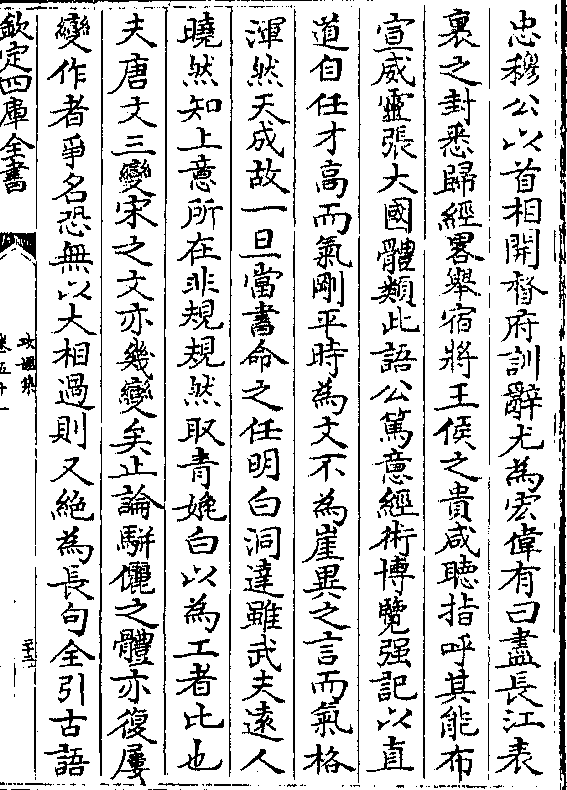 忠穆公以首相開督府訓辭尤為宏偉有曰盡長江表
裏之封悉歸經畧舉宿將王侯之貴咸聽指呼其能布
宣威靈張大國體類此語公篤意經術博覽强記以直
道自任才高而氣剛平時為文不為崖異之言而氣格
渾然天成故一旦當書命之任明白洞達雖武夫遠人
曉然知上意所在非規規然取青媲白以為工者比也
夫唐文三變宋之文亦幾變矣止論駢儷之體亦復屢
變作者爭名恐無以大相過則又絕為長句全引古語
欽定四庫全書
攻媿集
卷五十一